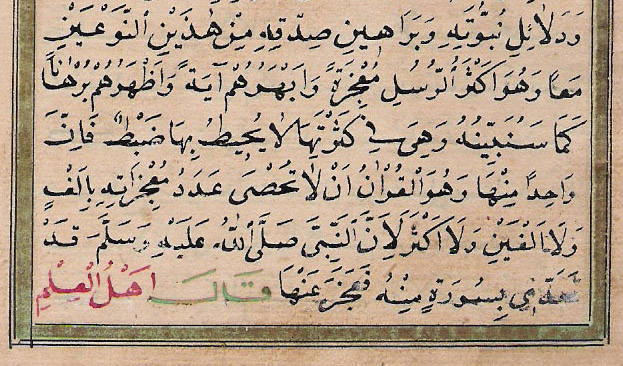 وَدَلَائِلِ نُبُوَّتِهِ وَبَرَاهِينِ صِدْقِهِ مِنْ هٰذَيْنِ النَّوْعَيْنِ
مَعًا وَهُوَ اَكْثَرُ الرُّسُلِ مُعْجِزَةً وَاَبْهَرُهُمْ آيَةً وَاَظْهَرُهُمْ بُرْهَانًا
كَمَا سَنُبَيِّنُهُ وَهِىَ فِى كَثْرَتِهَا لَا يُحِيطُ بِهَا ضَبْطٌ فَاِنَّ
وَاحِدًا مِنْهَا وَهُوَ الْقُرْاٰنُ اَنْ لَا تُحْصٰى عَدَدُ مُعْجِزَاتِهِ بِاَلْفٍ
وَلَا اَلْفَيْنِ وَلَا اَكْثَرَ لِاَنَّ النَّبِىَّ صَلَّى اللّٰهُ عَلَيْهِ وَسَلَّمَ قَدْ
تَحَدّٰى بِسُورَةٍ مِنْهُ فَعُجِزَ عَنْهَا قَالَ اَهْلُ الْعِلْمِ